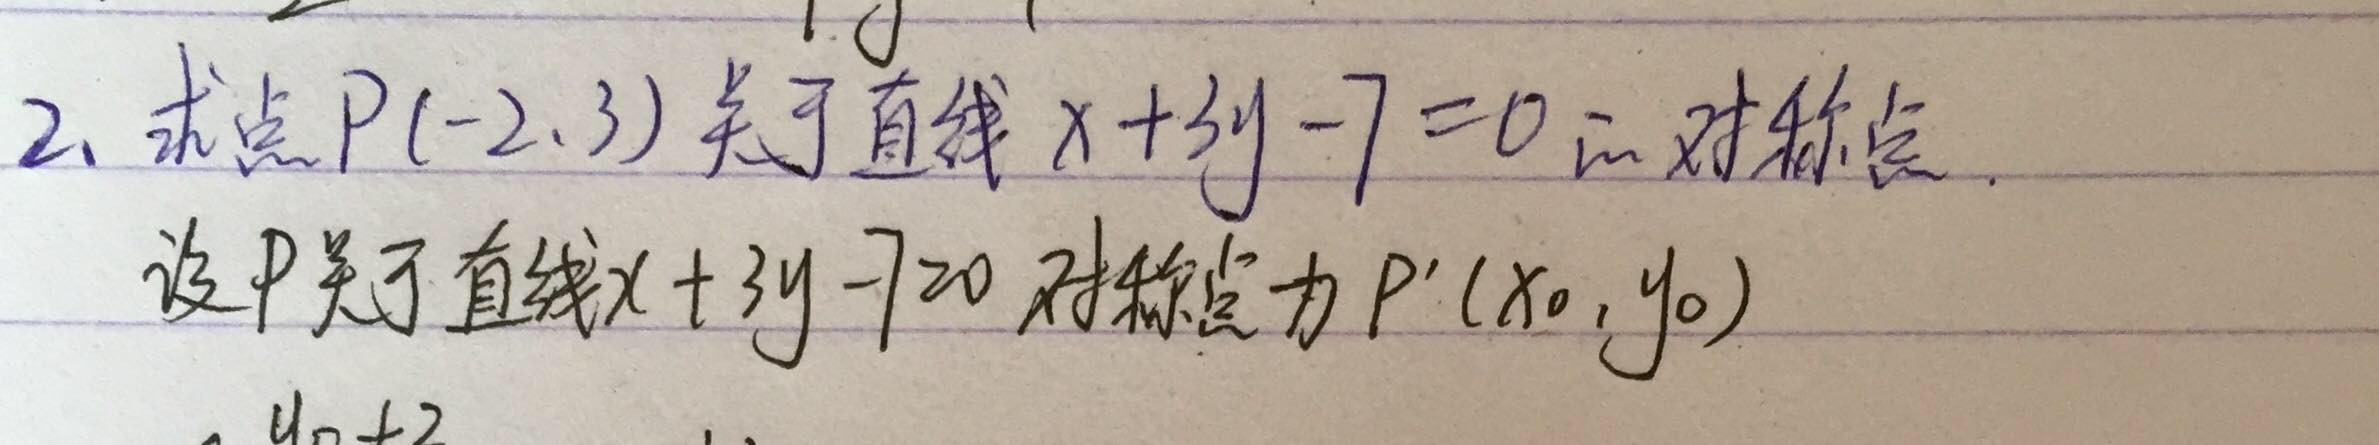 2、求点P(-2、3)关于直线 x+3y-7=0的对称点.
设P关于直线x+3y-7=0 对称点为P'(x₀,y₀)